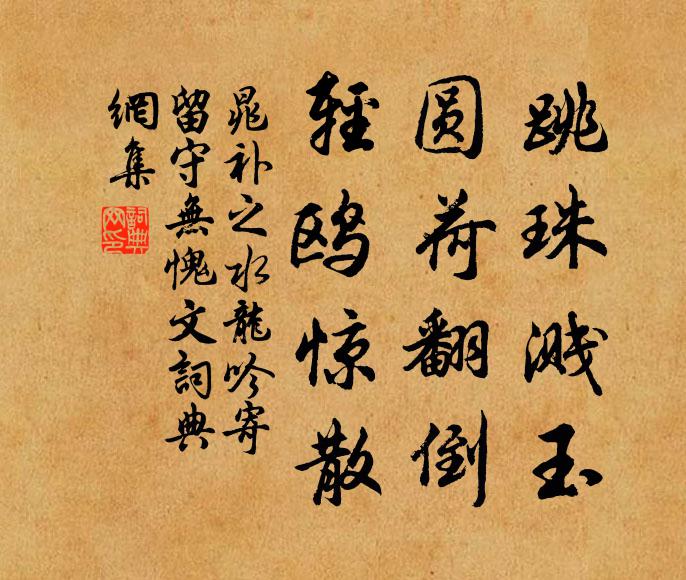 跳珠溅玉
圆荷翻倒
轻鸥惊散
晁补之水龍吟寄
留守無愧文詞典
網集
詞典
网印